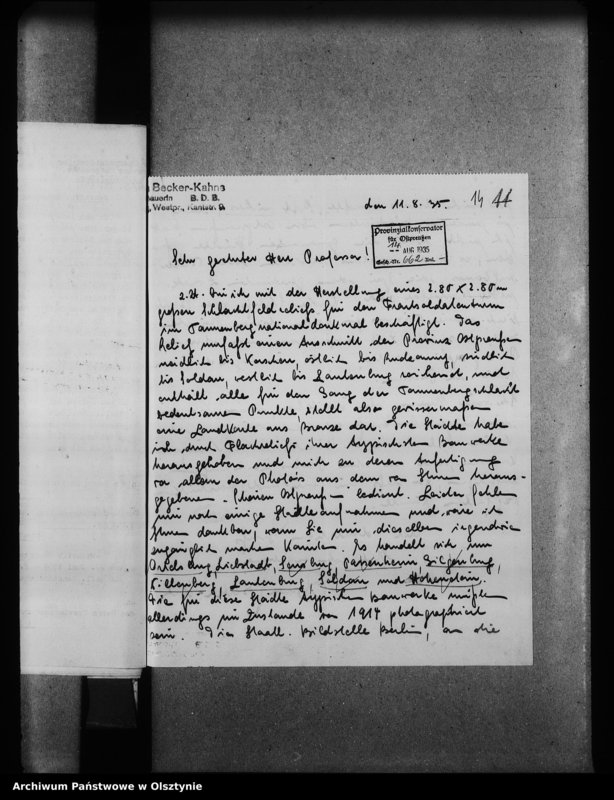 Becker-Kahns
B. D. B.
Westpr., Kantstr. 9.
den 11.8.35.
14
Provinzialkonservator
für Ostpreußen
14. AUG 1935
Gesch.-Nr. 662
Sehr geehrter Herr Professor!
z.Zt. bin ich mit der Herstellung eines 2.80 x 2.80 m
großen Schlachtfeldreliefs für den Frontsoldatenturm
im Tannenbergnationaldenkmal beschäftigt. Das
Relief umfaßt einen Ausschnitt der Provinz Ostpreußen
nördlich bis Korschen, östlich bis Rudczanny, südlich
bis Soldau, westlich bis Lautenburg reichend, und
enthält alle für den Gang der Tannenbergschlacht
bedeutsamen Punkte, stellt also gewissermaßen
eine Landkarte aus Bronze dar. Die Städte habe
ich durch Flachreliefs ihrer typischsten Bauwerke
herausgehoben und mich zu deren Anfertigung
vor allem der Photos aus dem von Ihnen heraus-
gegebenen Ostpreußen bedient. Leider fehlen
mir noch einige Städteaufnahmen und wäre ich
Ihnen dankbar, wenn Sie mir dieselben irgendwie
zugänglich machen könnten. Es handelt sich um
Ortelsburg, Liebstadt, Sensburg, Passenheim Gilgenburg,
Willenberg, Lautenburg, Soldau und Hohenstein.
Die für diese Städte typischen Bauwerke müßten
allerdings im Zustande von 1914 photographiert
sein. Die Staatl. Bildstelle Berlin, an die
Archiwum Państwowe w Olsztynie